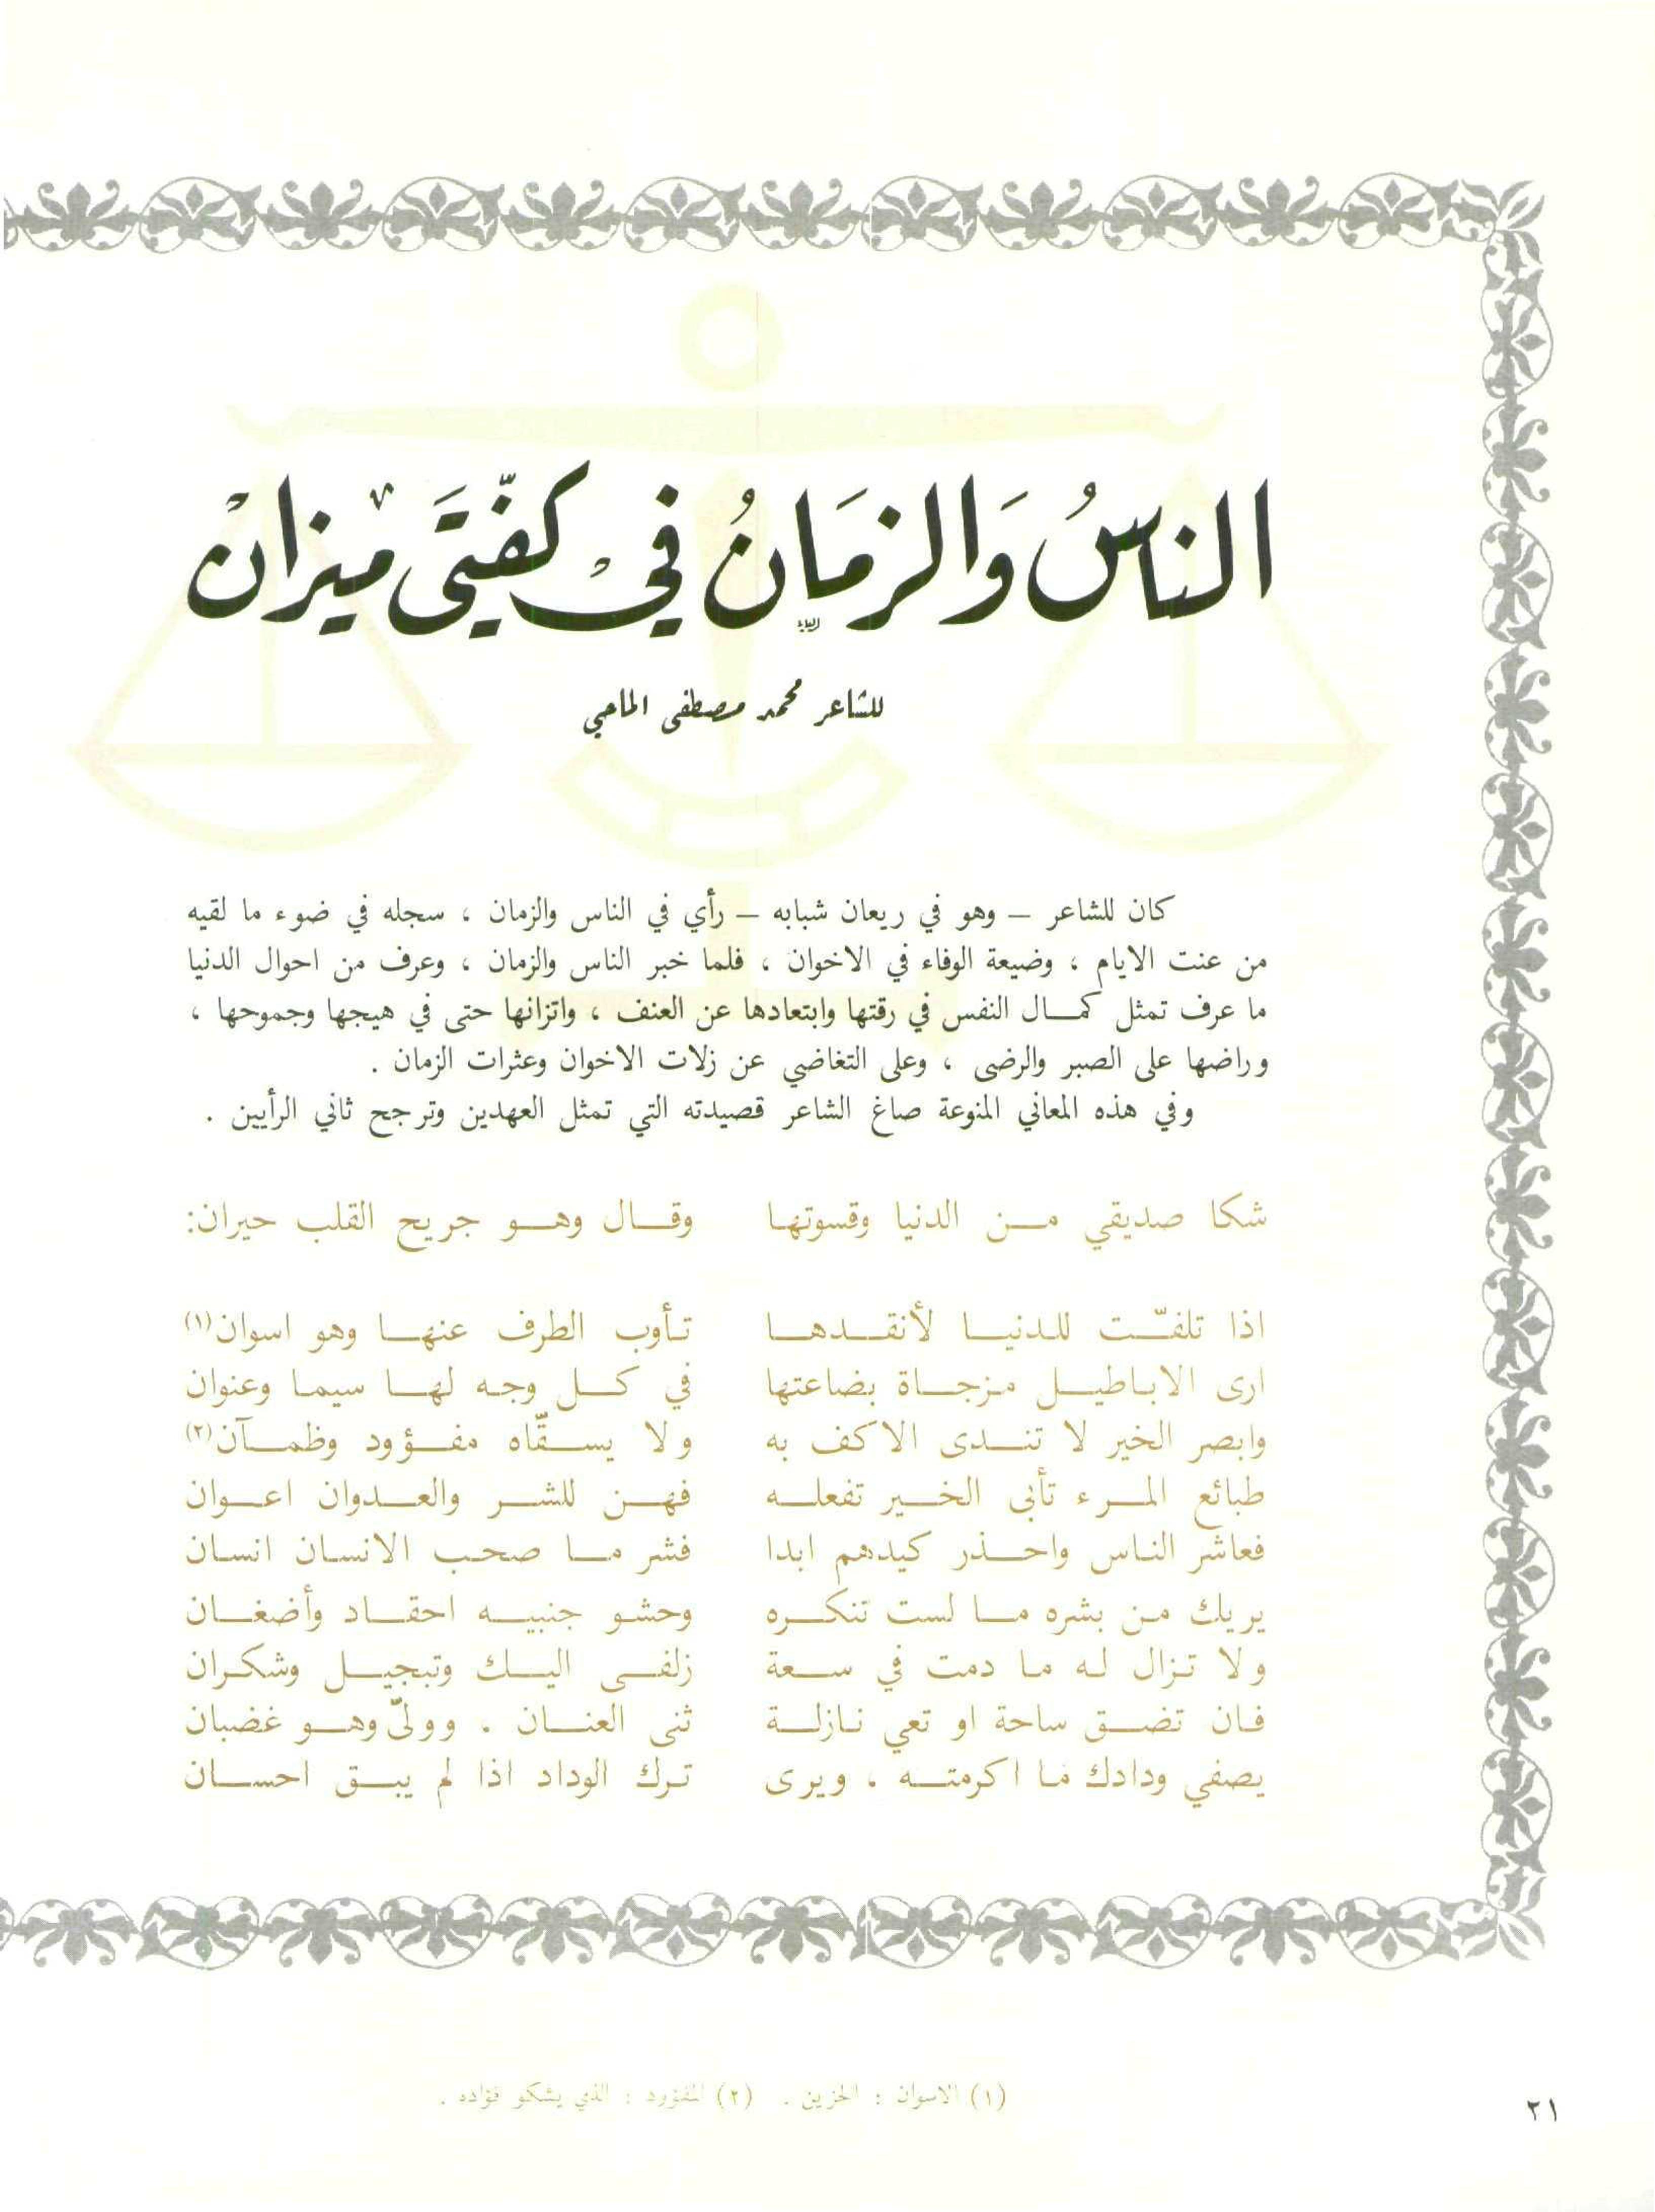 الناسُ وَالزمَانُ في كفّتَي ميزان
للشاعر محمد مصطفى الماحي
كان للشاعر – وهو في ريعان شبابه – رأي في الناس والزمان ، سجله في ضوء ما لقيه
من عنت الايام ، وضيعة الوفاء في الاخوان ، فلما خبر الناس والزمان ، وعرف من احوال الدنيا
ما عرف تمثل كمال النفس في رقتها وابتعادها عن العنف ، واتزانها حتى في هيجها وجموحها ،
وراضها على الصبر والرضى ، وعلى التغاضي عن زلات الاخوان وعثرات الزمان .
وفي هذه المعاني المنوعة صاغ الشاعر قصيدته التي تمثل العهدين وترجح ثاني الرأيين .
شكا صديقي من الدنيا وقسوتها وقال وهو جريح القلب حيران:
اذا تلفّت للدنيا لأنقدها تأوب الطرف عنها وهو اسوان(١)
ارى الاباطيل مزجاة بضاعتها في كل وجه لها سيما وعنوان
وابصر الخير لا تندى الاكف به ولا يسقّاه مفؤود وظمآن(٢)
طبائع المرء تأبى الخير تفعله فهن للشر والعدوان اعوان
فعاشر الناس واحذر كيدهم ابدا فشر ما صحب الانسان انسان
يريك من بشره ما لست تنكره وحشو جنبيه احقاد وأضغان
ولا تزال له ما دمت في سعة زلفى اليك وتبجيل وشكران
فان تضق ساحة او تعي نازلة ثنى العنان . وولىّ وهو غضبان
يصفي ودادك ما اكرمته ، ويرى ترك الوداد اذا لم يبق احسان
(١) الاسوان : الحزين . (٢) المفؤود : الذي يشكو فؤاده .
٢١